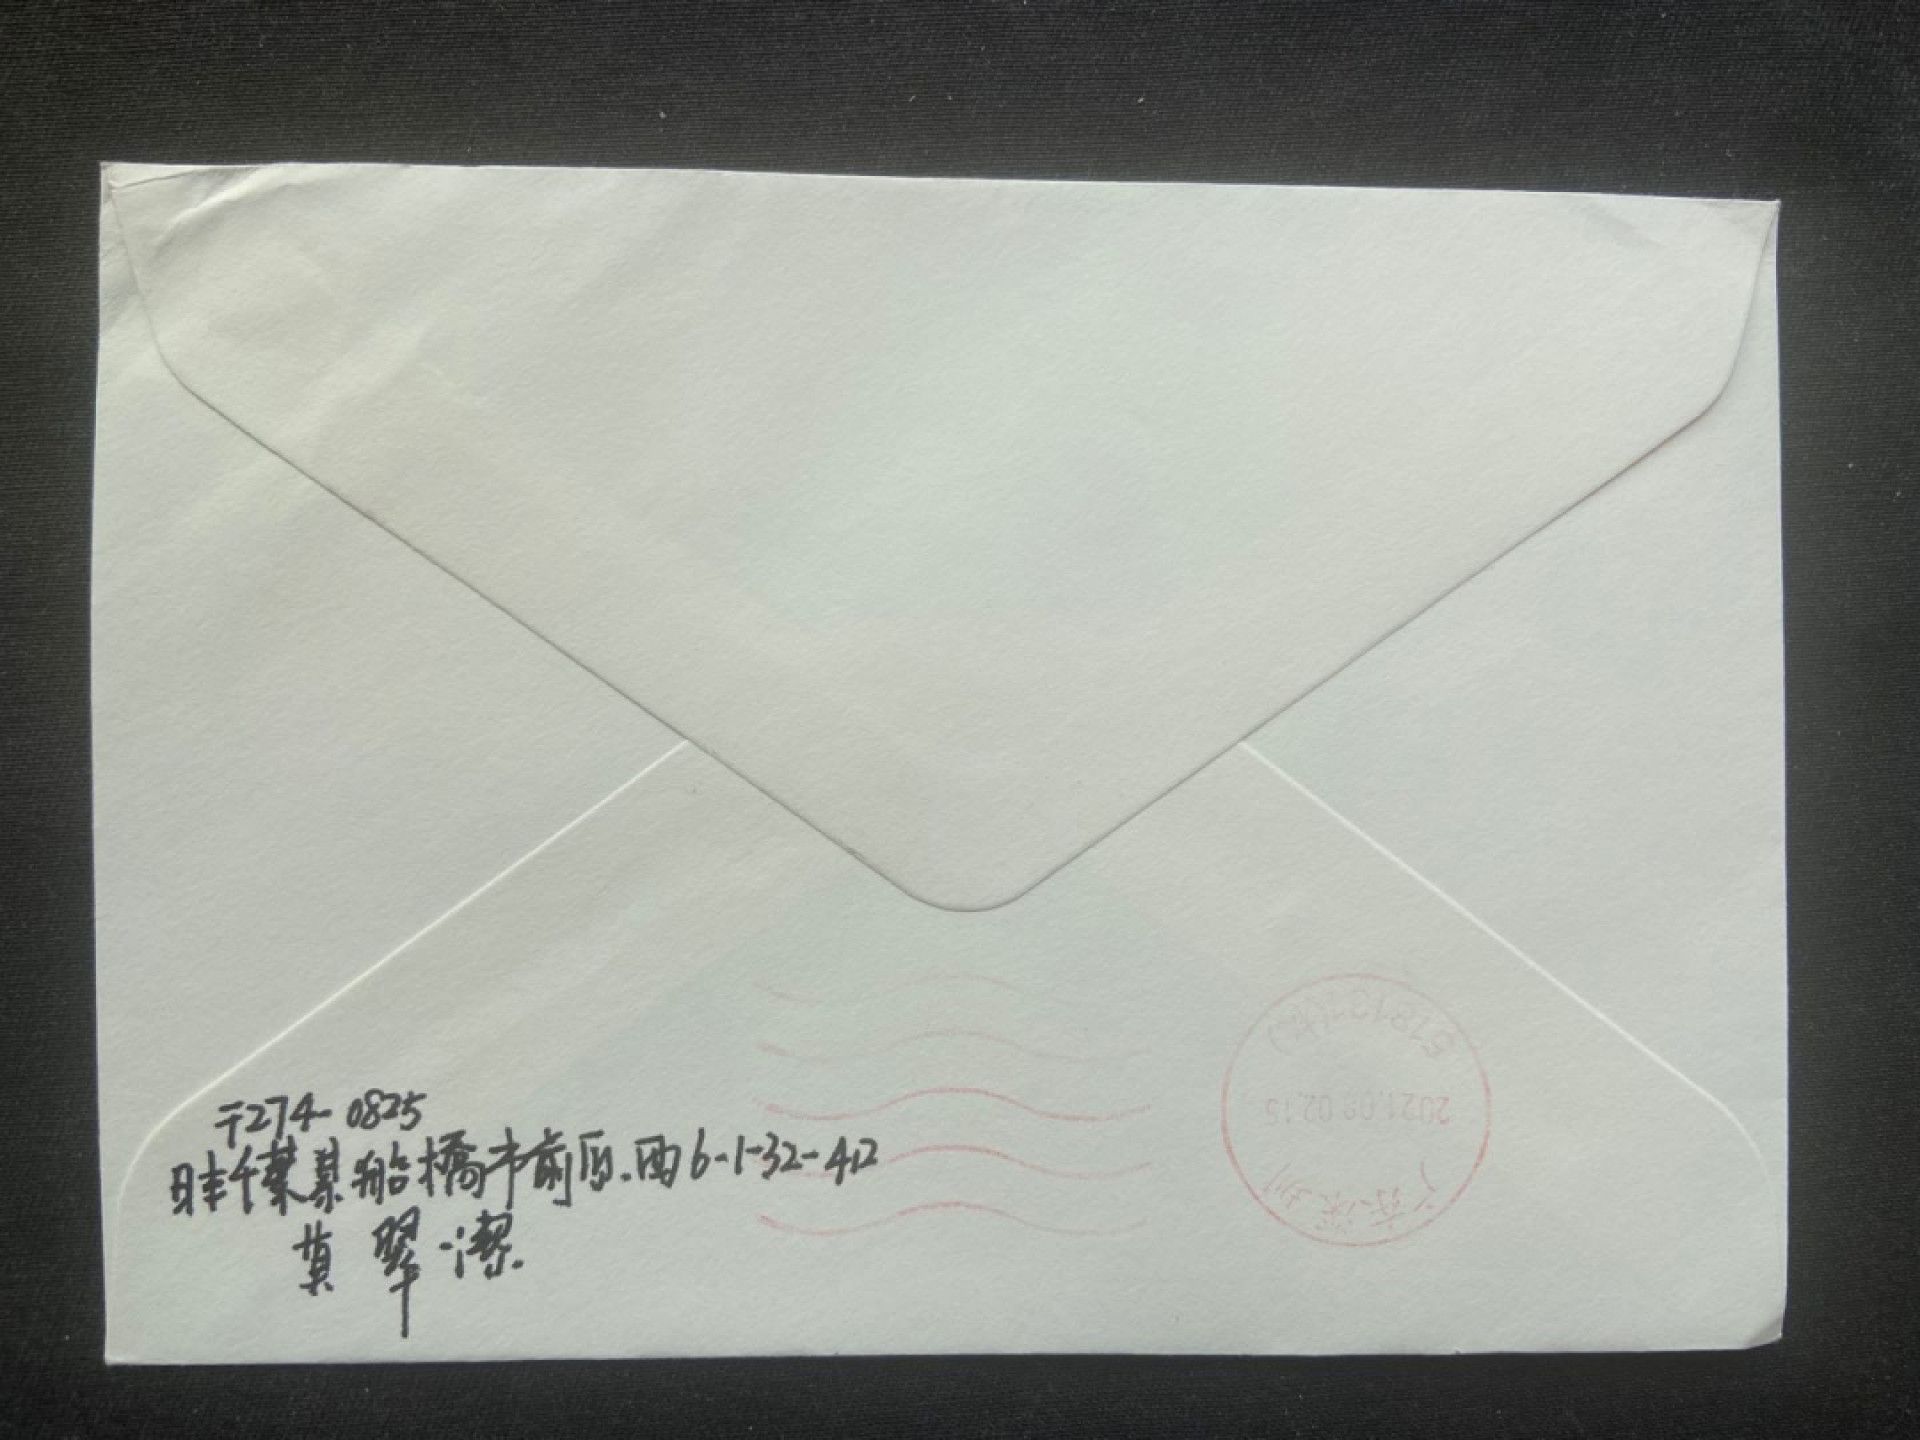 〒274-0825
日本千葉県船橋市前原西6-1-32-412
莫翠潔
518131(投)
2021.09.02.15
广东深圳